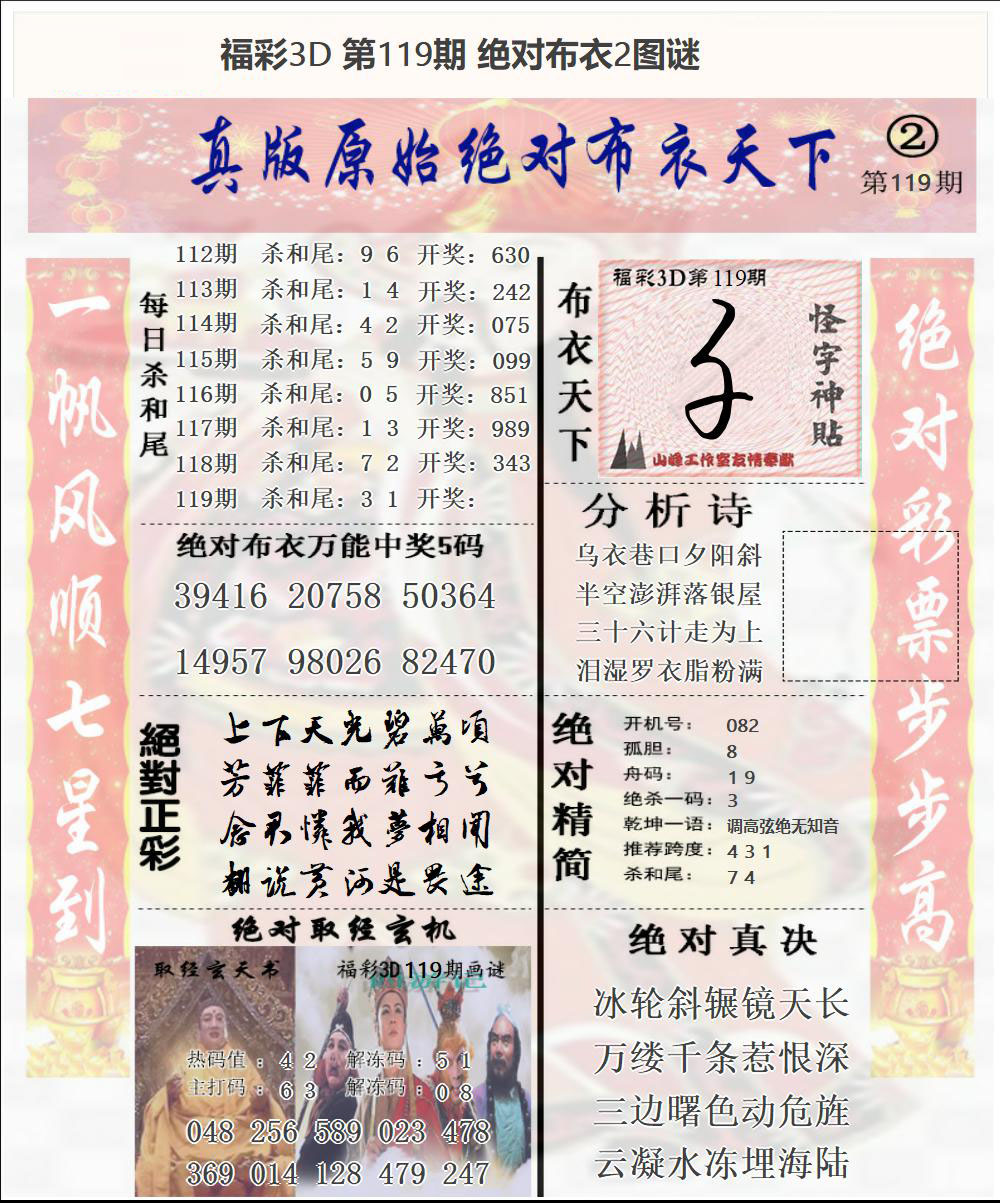 福彩3D 第119期 绝对布衣2图谜
真版原始绝对布衣天下
②
第119期
一帆风顺七星到
每日杀和尾
112期 杀和尾：9 6 开奖：630
113期 杀和尾：1 4 开奖：242
114期 杀和尾：4 2 开奖：075
115期 杀和尾：5 9 开奖：099
116期 杀和尾：0 5 开奖：851
117期 杀和尾：1 3 开奖：989
118期 杀和尾：7 2 开奖：343
119期 杀和尾：3 1 开奖：
绝对布衣万能中奖5码
39416 20758 50364
14957 98026 82470
絕對正彩
上下天光碧萬頃
芳菲菲而難亏兮
念君憐我夢相闻
翻说黄河是畏途
绝对取经玄机
取经玄天书
福彩3D119期画谜
热码值：4 2 解冻码：5 1
主打码：6 3 解冻码：0 8
048 256 589 023 478
369 014 128 479 247
布衣天下
福彩3D第119期
怪字神貼
山峰工作室友情奉献
分析诗
乌衣巷口夕阳斜
半空澎湃落银屋
三十六计走为上
泪湿罗衣脂粉满
绝对精简
开机号：082
孤胆：8
舟码：1 9
绝杀一码：3
乾坤一语：调高弦绝无知音
推荐跨度：4 3 1
杀和尾：7 4
绝对真决
冰轮斜辗镜天长
万缕千条惹恨深
三边曙色动危旌
云凝水冻埋海陆
绝对彩票步步高